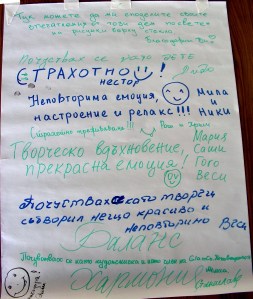 Тук можете да ни споделите своите
впечатления от това, чем
да рисувам върху стъкло
Благодарим Ви!
Почувствах се много добре
СТРАХОТНО!
нестор
Неповторима емоция,
настроение и релакс!!!
Мила
и
Ники
Страхотно преживяване!!!
Творческо вдъхновение,
прекрасна емоция!
Мария
Сашки
Гого
Веси
Почуствах се като творец
сътворил нещо красиво и
неповторимо
Веси
Баланс
Почувствах се като художничка
Хармония